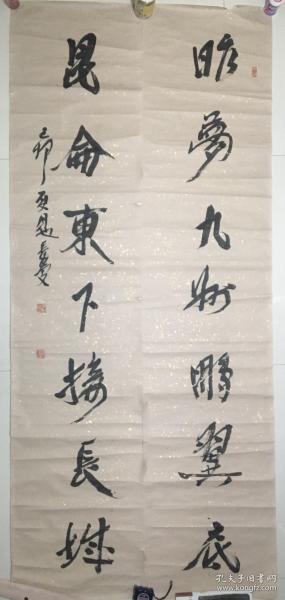 昨夢九州鵬翼底
昆侖東下接長城
己卯夏
孔夫子旧书网